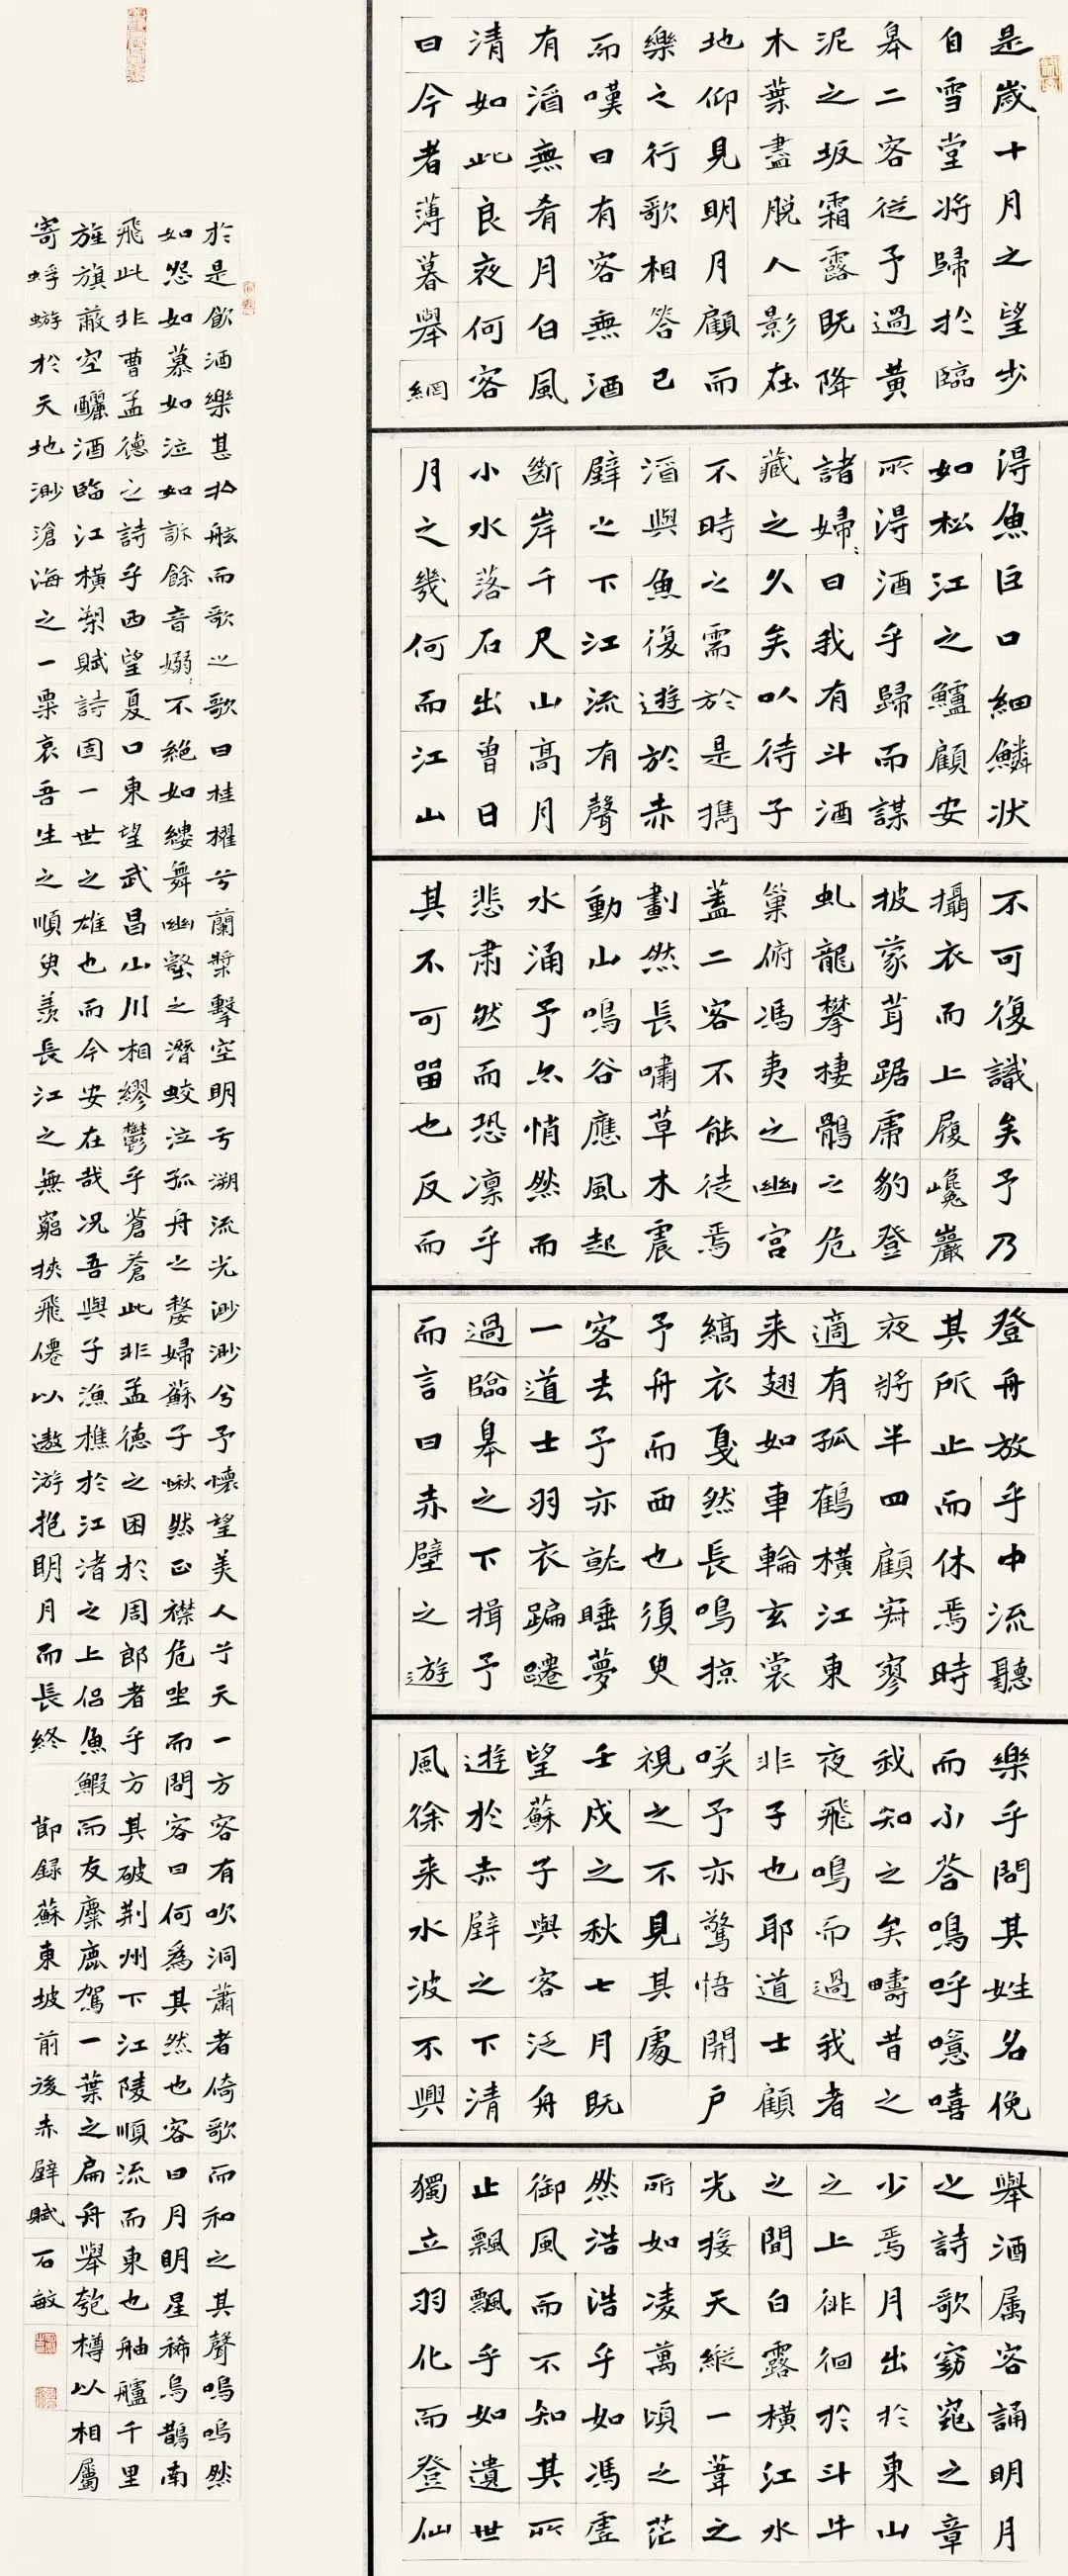 是歲十月之望步
自雪堂將歸於臨
皋二客從予過黃
泥之坂霜露既降
木葉盡脫人影在
地仰見明月顧而
樂之行歌相答已
而嘆曰有客無酒
有酒無肴月白風
清如此良夜何客
曰今者薄暮舉網
得魚巨口細鱗狀
如松江之鱸顧安
所得酒乎歸而謀
諸婦:曰我有斗酒
藏之久矣以待子
不時之需於是攜
酒與魚復遊於赤
壁之下江流有聲
斷岸千尺山高月
小水落石出曾日
月之幾何而江山
不可復識矣予乃
攝衣而上履巉巖
披蒙茸踞虎豹登
虬龍攀棲鶻之危
巢俯馮夷之幽宮
蓋二客不能從焉
劃然長嘯草木震
動山鳴谷應風起
水涌予亦悄然而
悲肅然而恐凛乎
其不可留也反而
登舟放乎中流聽
其所止而休焉時
夜將半四顧寂寥
適有孤鶴橫江東
来翅如車輪玄裳
縞衣戛然長鳴掠
予舟而西也須臾
客去予亦就睡夢
一道士羽衣蹁躚
過臨皋之下揖予
而言曰赤壁之遊
樂乎問其姓名俛
而不答鳴呼噫嘻
我知之矣疇昔之
夜飛鳴而過我者
非子也耶道士顧
咲予亦驚悟開戶
視之不見其處
壬戌之秋七月既
望蘇子與客泛舟
遊於赤壁之下清
風徐来水波不興
舉酒属客誦明月
之詩歌窈窕之章
少焉月出於東山
之上徘徊於斗牛
之間白露橫江水
光接天縱一葦之
所如凌萬頃之茫
然浩浩乎如馮虛
御風而不知其所
止飄飄乎如遺世
獨立羽化而登仙
於是飲酒樂甚扣舷而歌之歌曰桂櫂兮蘭槳擊空明兮溯流光渺渺兮予懷望美人兮天一方客有吹洞簫者倚歌而和之其聲嗚嗚然
如怨如慕如泣如訴餘音嫋:不絕如縷舞幽壑之潛蛟泣孤舟之嫠婦蘇子愀然正襟危坐而問客曰何為其然也客曰月明星稀烏鵲南
飛此非曹孟德之詩乎西望夏口東望武昌山川相繆鬱乎蒼蒼此非孟德之困於周郎者乎方其破荆州下江陵順流而東也舳艫千里
旌旗蔽空釃酒臨江橫槊賦詩固一世之雄也而今安在哉况吾與子漁樵於江渚之上侶魚鰕而友麋鹿駕一葉之扁舟舉匏樽以相屬
寄蜉蝣於天地渺滄海之一粟哀吾生之須臾羨長江之無窮挾飛僊以遨游抱明月而長終 節録蘇東坡前後赤壁賦石敏